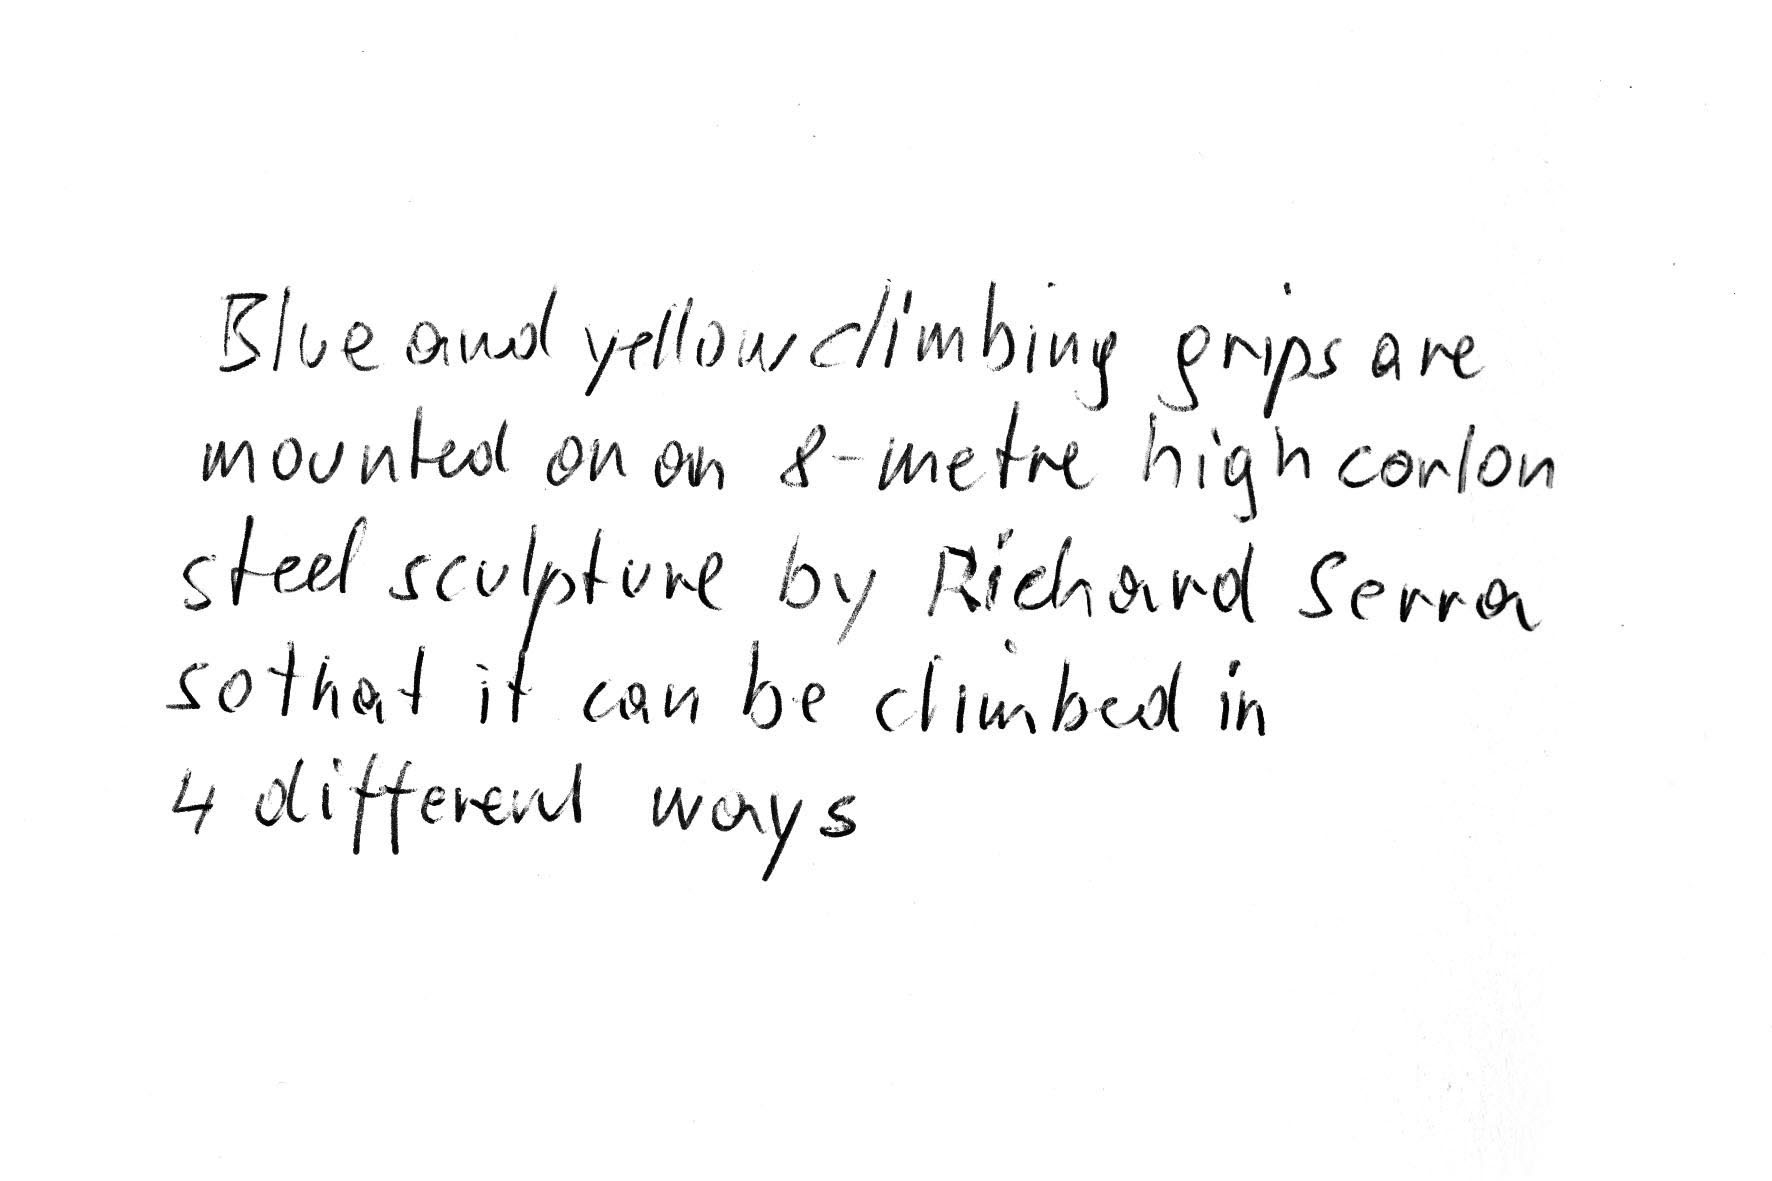 Blue and yellow climbing grips are
mounted on an 8-metre high corlon
steel sculpture by Richard Serra
so that it can be climbed in
4 different ways